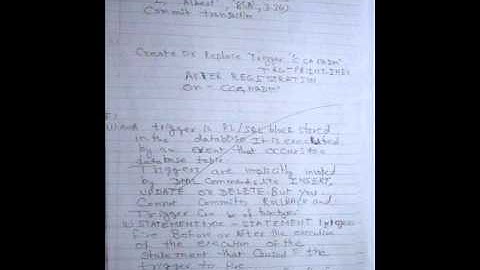 Albert', 'BSA', 3.26)
Commit transaction
Create or Replace Trigger "CCADMIN"
TRG-PRINT-INFO
AFTER REGISTRATION
on - CCADMIN
trigger is PL/SQL block stored
in the database It is executed
by an event that occurs to a
database table.
Triggers are implicitly invoked
by DML Commands like INSERT,
UPDATE or DELETE. But you
Cannot Commits Rollback and
Trigger Can be of two types
STATEMENT type - STATEMENT trigger
Fire Before or After the execution
of the execution of the
statement that Caused the
trigger to fire